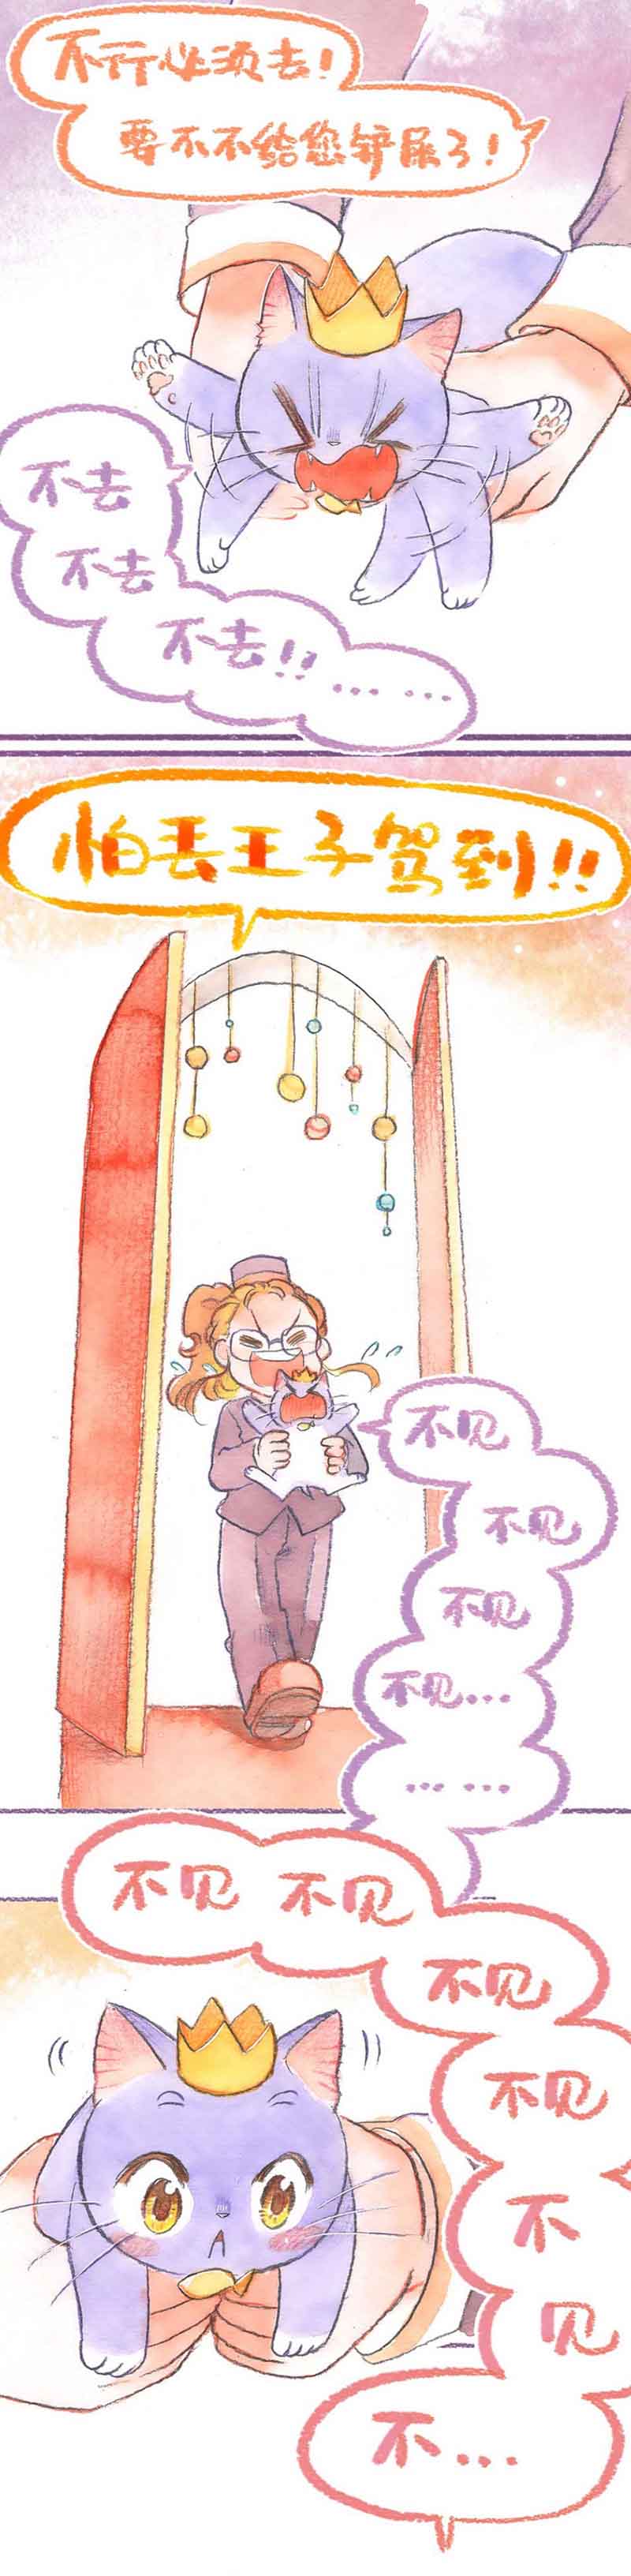 不行必须去！
要不不给您铲屎了！
不去
不去
不去!!……
怕丢王子驾到!!
不见
不见
不见
不见…
……
不见 不见
不见
不见
不
见
不…